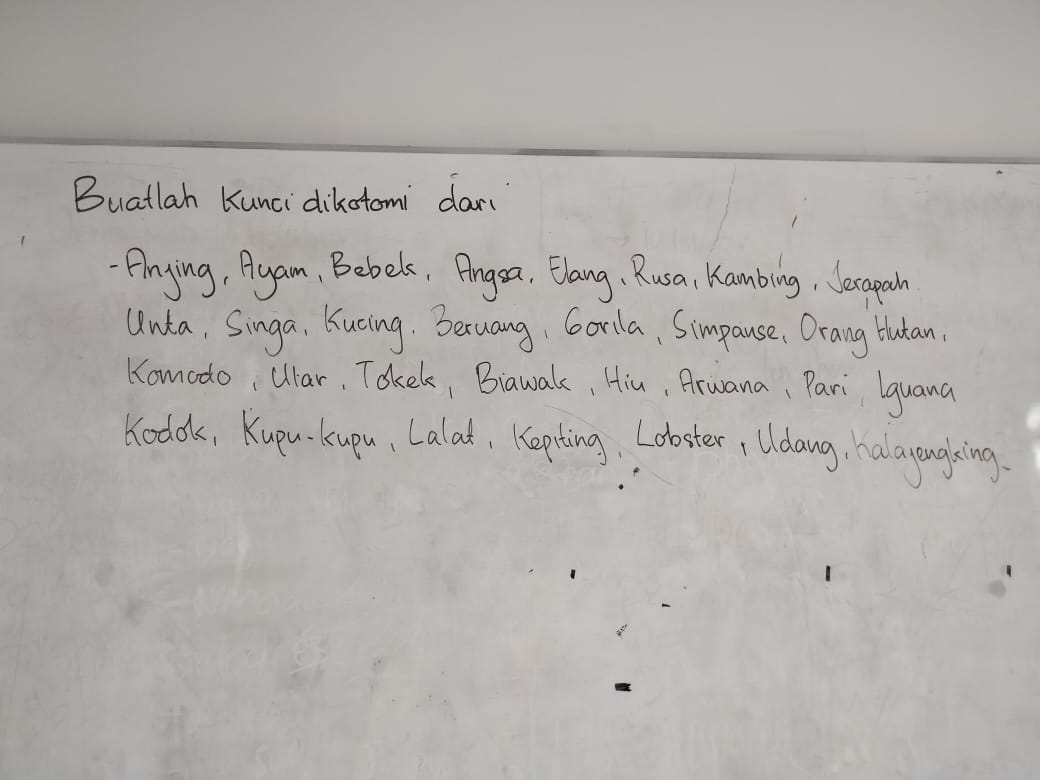 Buatlah Kunci dikotomi dari
- Anjing, Ayam, Bebek, Angsa, Elang, Rusa, Kambing, Jerapah
Unta, Singa, Kucing, Beruang, Gorila, Simpanse, Orang Hutan,
Komodo, Ular, Tokek, Biawak, Hiu, Arwana, Pari, Iguana
Kodok, Kupu-kupu, Lalat, Kepiting, Lobster, Udang, Kalajengking.